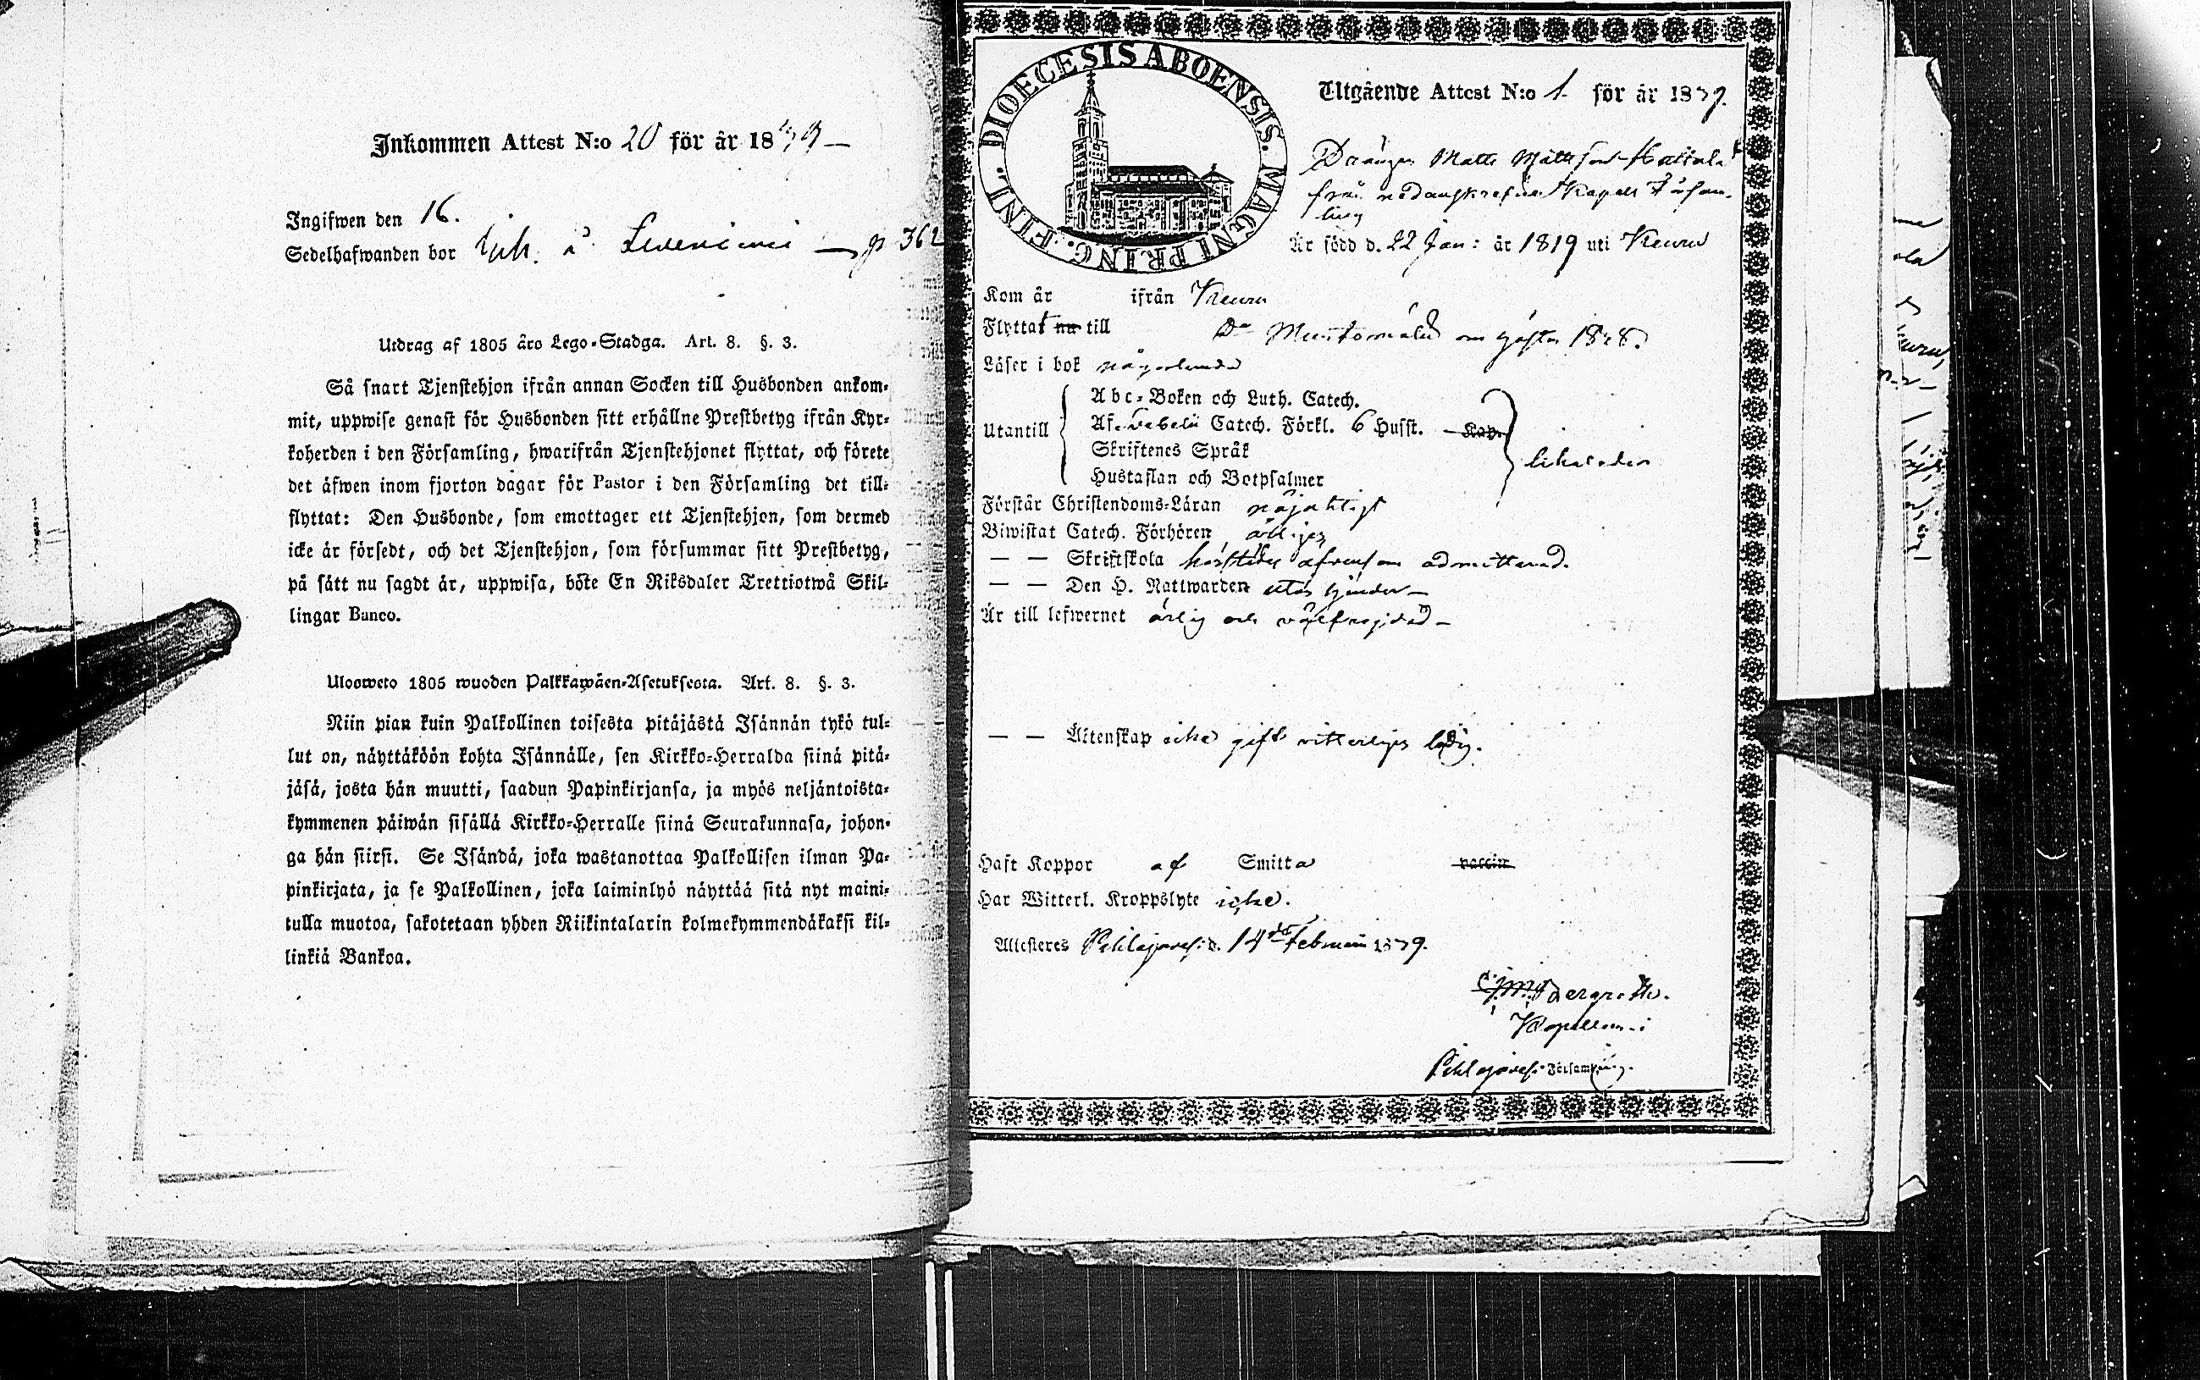 Inkommen Attest N:o 20 för år 1839
Ingifwen den 16.
Sedelhafwanden bor p 362
Utdrag af 1805 års Lego-Stadga. Art. 8. §. 3.
Så snart Tjenstehjon ifrån annan Socken till Husbonden ankom-
mit, uppwise genast för Husbonden sitt erhållne Prestbetyg ifrån Kyr-
koherden i den Församling, hwarifrån Tjenstehjonet flyttat, och förete
det äfwen inom fjorton dagar för Pastor i den Församling det till-
flyttat: Den Husbonde, som emottager ett Tjenstehjon, som dermed
icke är försedt, och det Tjenstehjon, som försummar sitt Prestbetyg,
på sätt nu sagdt är, uppwisa, böte En Riksdaler Trettiotwå Skil-
lingar Banco.
Ulosweto 1805 wuoden Palkkawäen-Asetuksesta. Art. 8. §. 3.
Niin pian kuin Palkollinen toisesta pitäjästä Isännän tykö tul-
lut on, näyttäköön kohta Isännälle, sen Kirkko-Herralda siinä pitä-
jäsä, josta hän muutti, saadun Papinkirjansa, ja myös neljäntoista-
kymmenen päiwän sisällä Kirkko-Herralle siinä Seurakunnasa, johon-
ga hän siirsi. Se Isändä, joka wastanottaa Palkollisen ilman Pa-
pinkirjata, ja se Palkollinen, joka laiminlyö näyttää sitä nyt maini-
tulla muotoa, sakotetaan yhden Riikintalarin kolmekymmendäkaksi kil-
linkiä Bankoa.
DIOECESIS ABOENSIS. MAGNI PRINC. FINL.
Utgående Attest N:o 1. för år 1839.
Drängen Matts Mattsson
från nedanskrefne Kapells Försam-
ling
Är född d. 22 Jan: år 1819 uti Keuru
Kom år ifrån Keuru
Flyttat nu till
Läser i bok någorlunda
Utantill
Abc-Boken och Luth. Catech.
Af Svebelii Catech. Förkl. 6 Hufst. Kap.
Skriftenes Språk
Hustaflan och Botpsalmer
likaledes
Förstår Christendoms-Läran nöjaktigt
Biwistat Catech. Förhören årligen
— — Skriftskola admitterad.
— — Den H. Nattwarden
Är till lefwernet ärlig och välfrejdad
— — Äktenskap icke gift witterligen ledig.
Haft Koppor af Smitta vaccin
Har Witterl. Kroppslyte icke.
Attesteras Pihlajavesi d. 14de Februari 1839.
Bergroth.
Kapellan i
Pihlajavesi Församling.